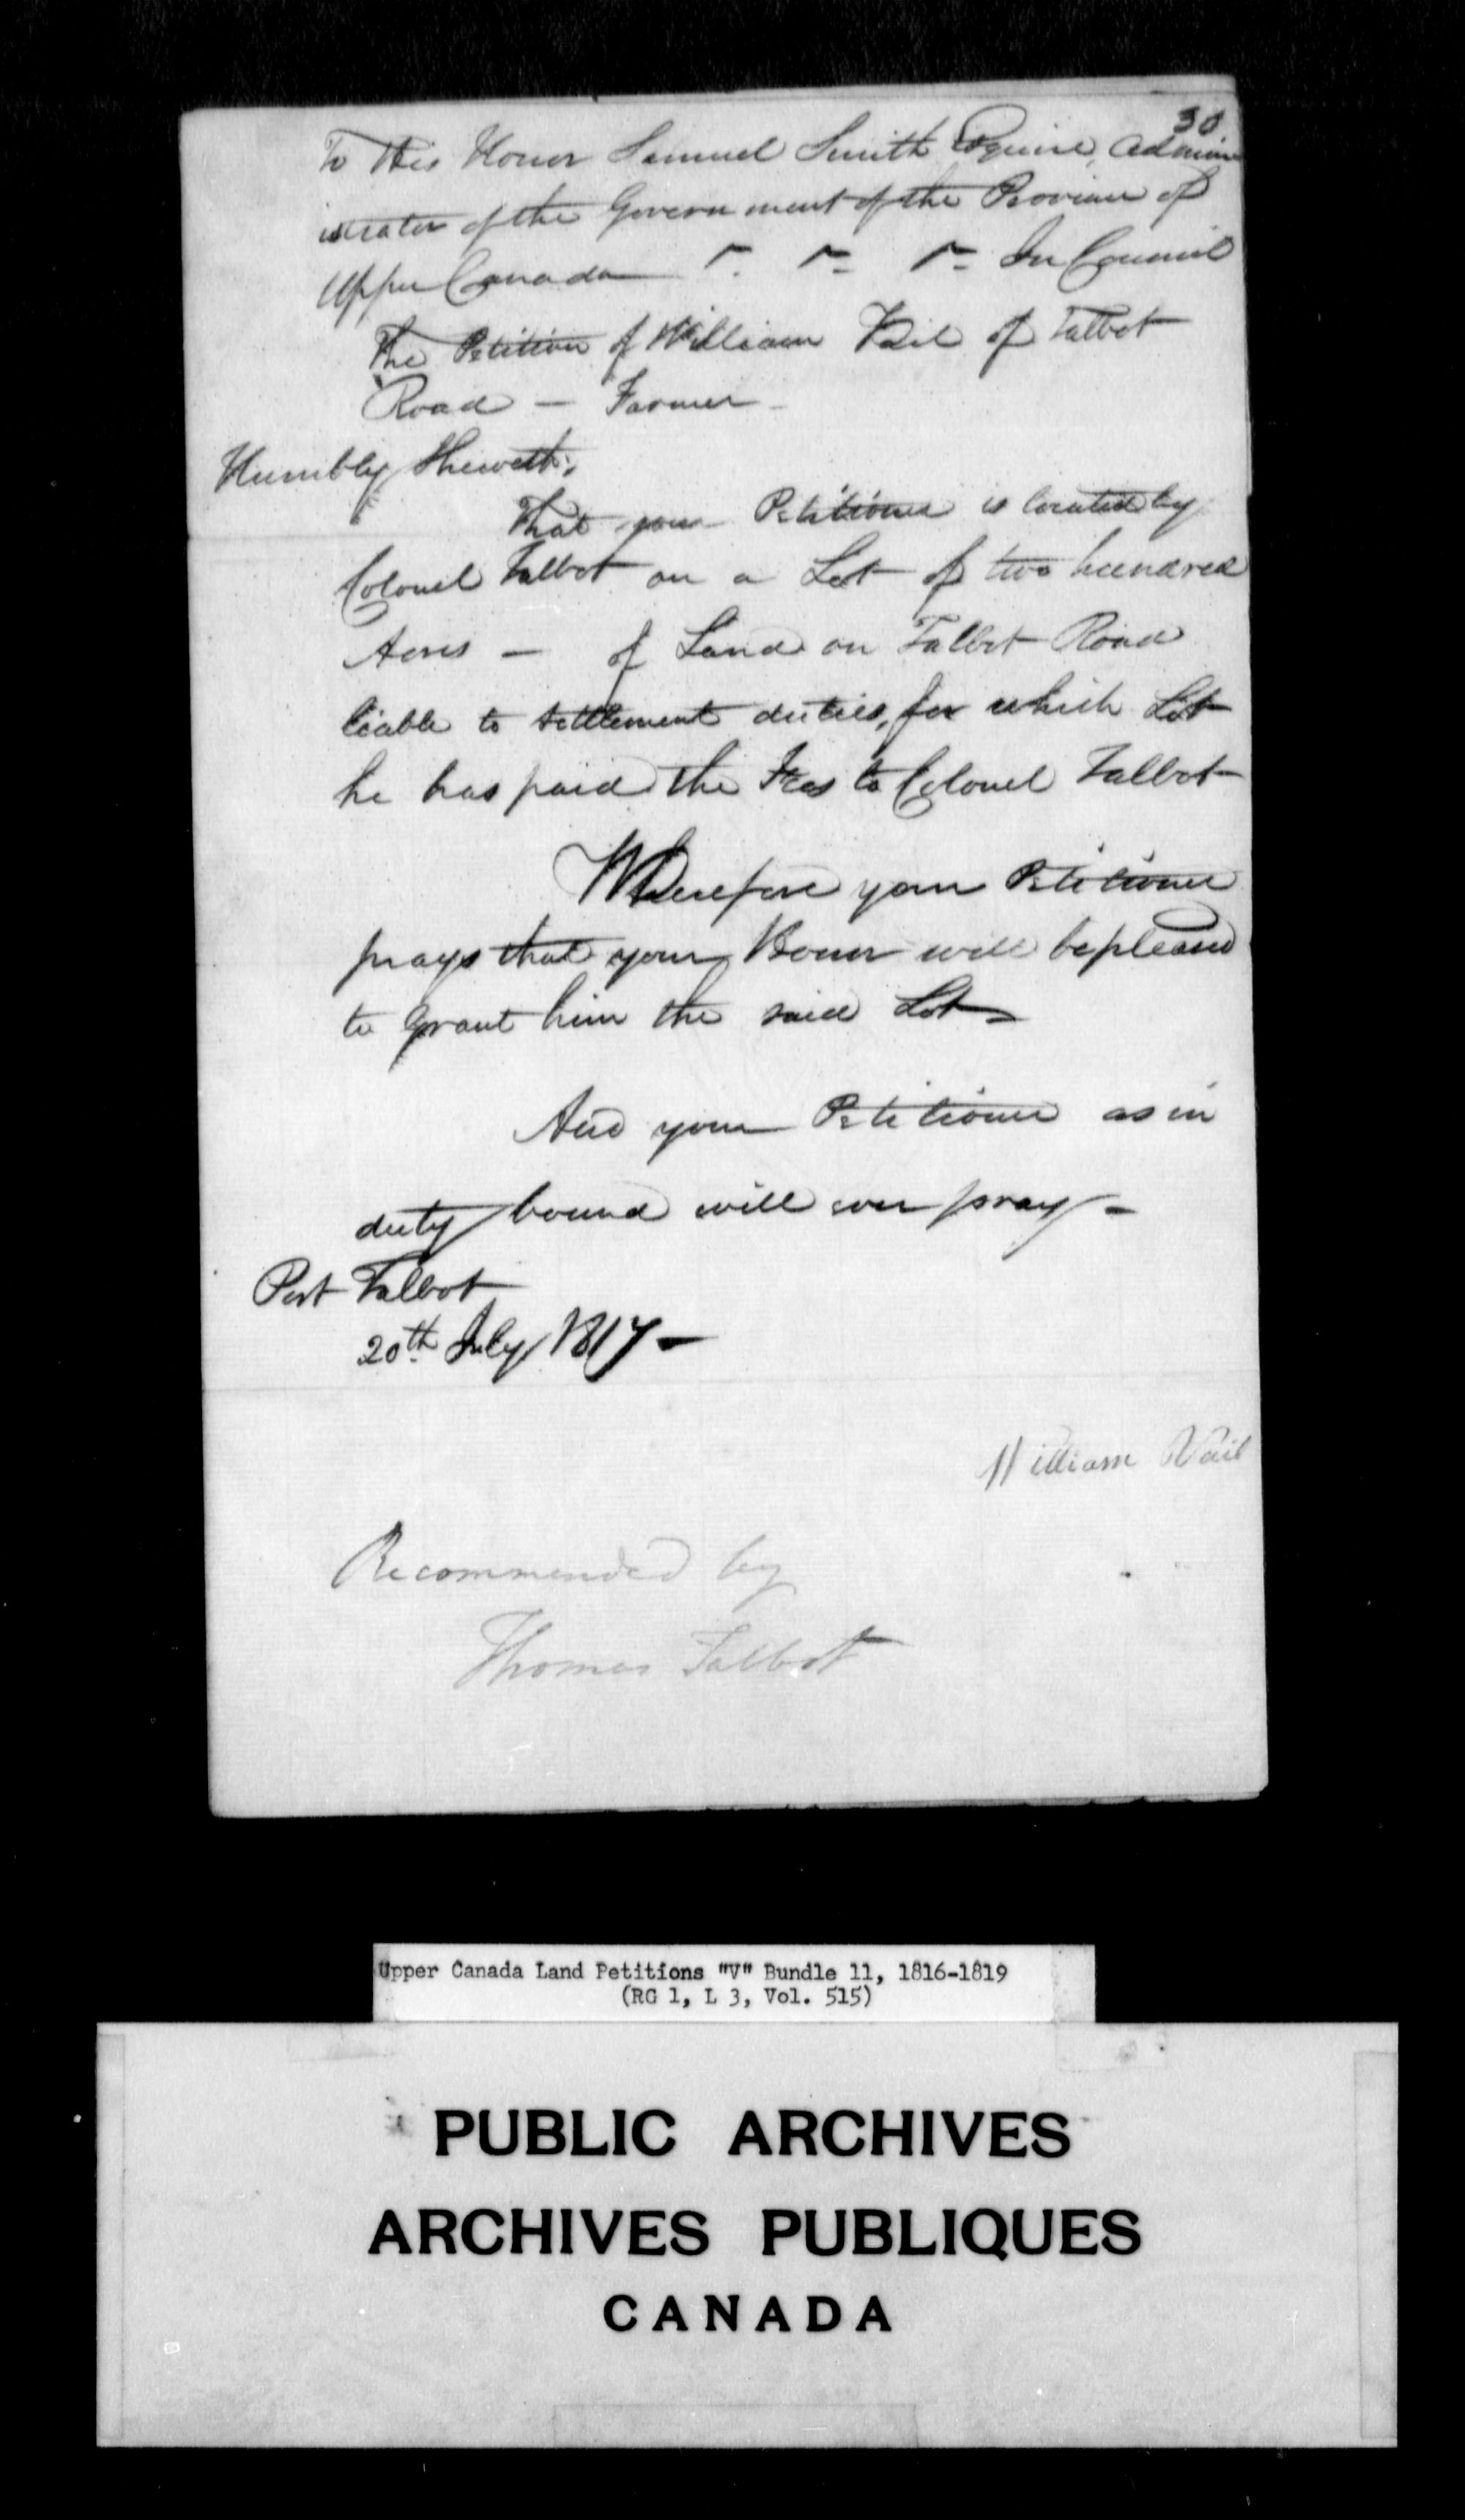 30
To His Honor Samuel Smith Esquire, Admin
istrator of the Government of the Province of
Upper Canada &c. &c. &c. In Council
The Petition of William Vail of Talbot
Road — Farmer —
Humbly Sheweth;
That your Petitioner is located by
Colonel Talbot on a Lot of two hundred
Acres — of Land on Talbot Road
liable to settlement duties, for which Lot
he has paid the Fees to Colonel Talbot
Wherefore your Petitioner
prays that your Honor will be pleased
to grant him the said Lot
And your Petitioner as in
duty bound will ever pray —
Port Talbot
20th July 1817 —
William Vail
Recommended by
Thomas Talbot
Upper Canada Land Petitions "V" Bundle 11, 1816-1819
(RG 1, L 3, Vol. 515)
PUBLIC ARCHIVES
ARCHIVES PUBLIQUES
CANADA